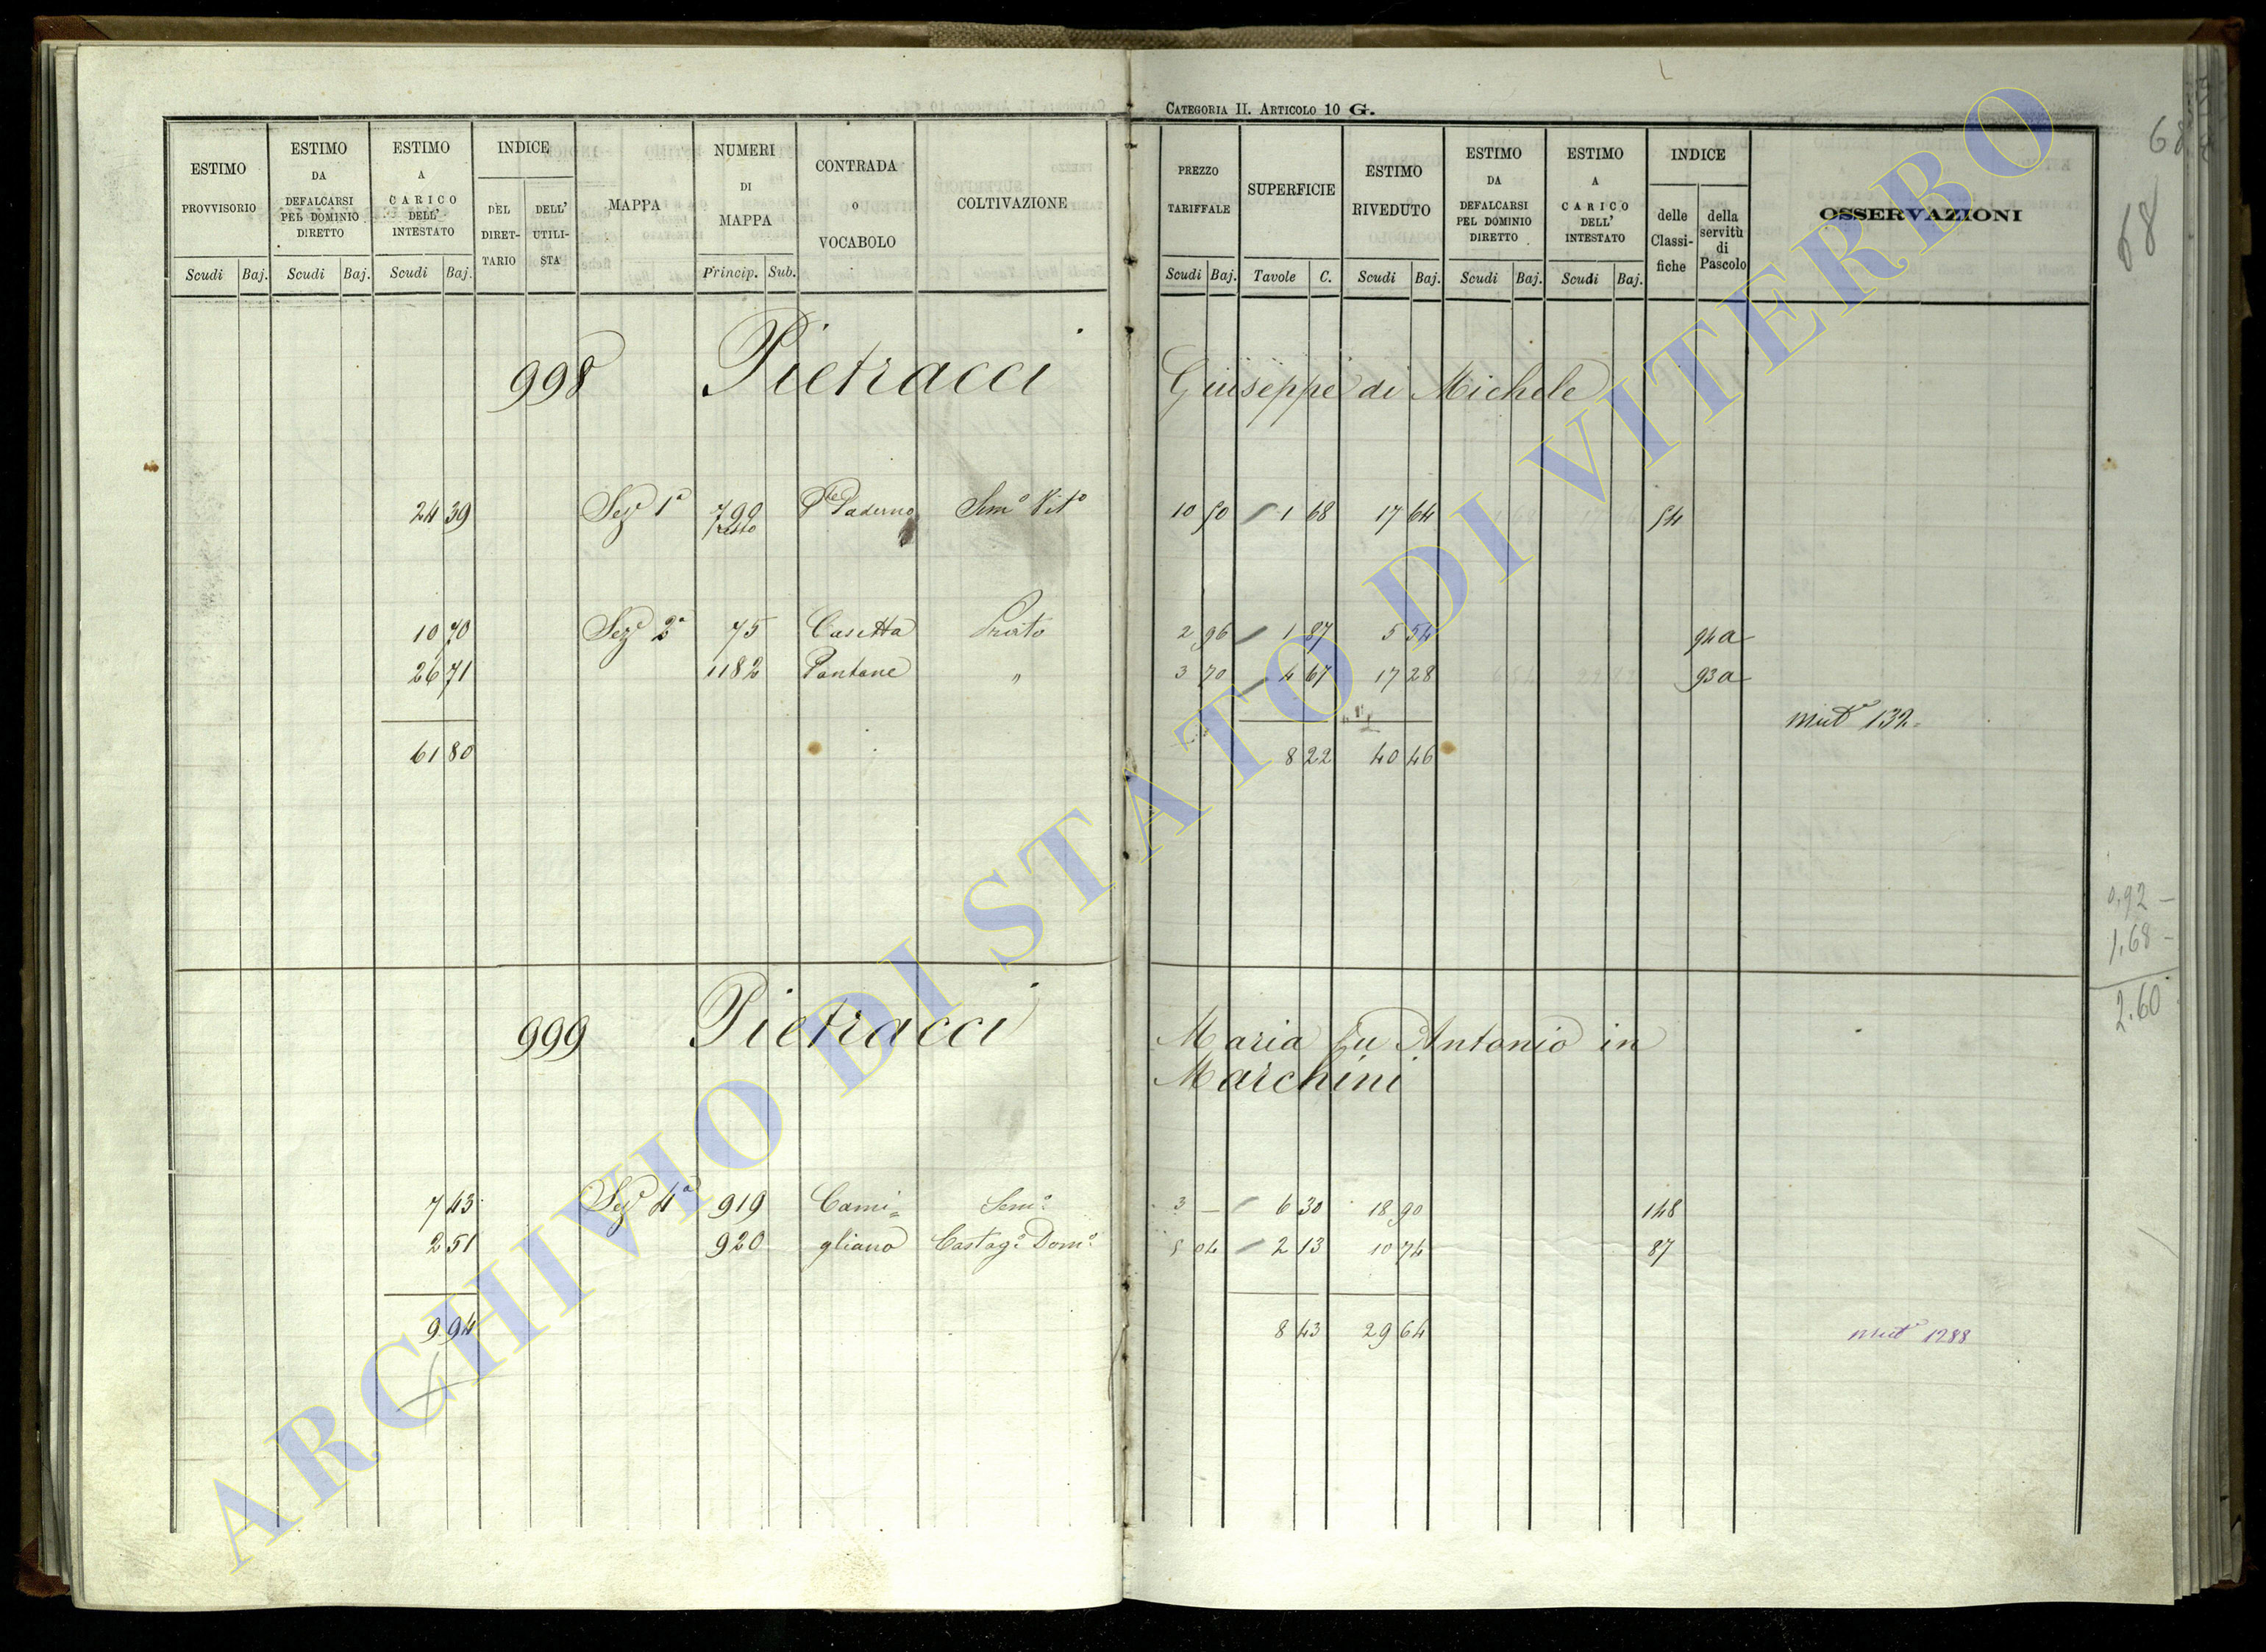 CATEGORIA II. ARTICOLO 10 G.
ESTIMO PROVVISORIO
ESTIMO DA DEFALCARSI PEL DOMINIO DIRETTO
ESTIMO A CARICO DELL' INTESTATO
INDICE
DEL DIRET-TARIO
DELL' UTILI-STA
MAPPA
NUMERI DI MAPPA
CONTRADA O VOCABOLO
COLTIVAZIONE
PREZZO TARIFFALE
SUPERFICIE
ESTIMO RIVEDUTO
ESTIMO DA DEFALCARSI PEL DOMINIO DIRETTO
ESTIMO A CARICO DELL' INTESTATO
INDICE
delle Classi-fiche
della servitù di Pascolo
OSSERVAZIONI
Scudi Baj. Scudi Baj. Scudi Baj. Princip. Sub. Scudi Baj. Tavole C. Scudi Baj. Scudi Baj. Scudi Baj.
68
68
998 Pietracci Giuseppe di Michele
24 39 Sezᵉ 1ª 790 Pᵗᵉ Paderno Semº Vitº 10 50 1 68 17 64 54
resto
10 70 Sezᵉ 2ª 75 Casetta Prato 2 96 1 87 5 54 94a
26 71 1182 Pantane " 3 70 4 67 17 28 93a
mutª 132
61 80 8 22 40 46
0,92
1,68
2.60
999 Pietracci Maria fu Antonio in
Marchini
7 43 Sezᵉ 4ª 919 Cami= Semº 3 — 6 30 18 90 148
2 51 920 gliano Castagº Domº 5 04 2 13 10 74 87
9 94 8 43 29 64 mutª 1288
ARCHIVIO DI STATO DI VITERBO